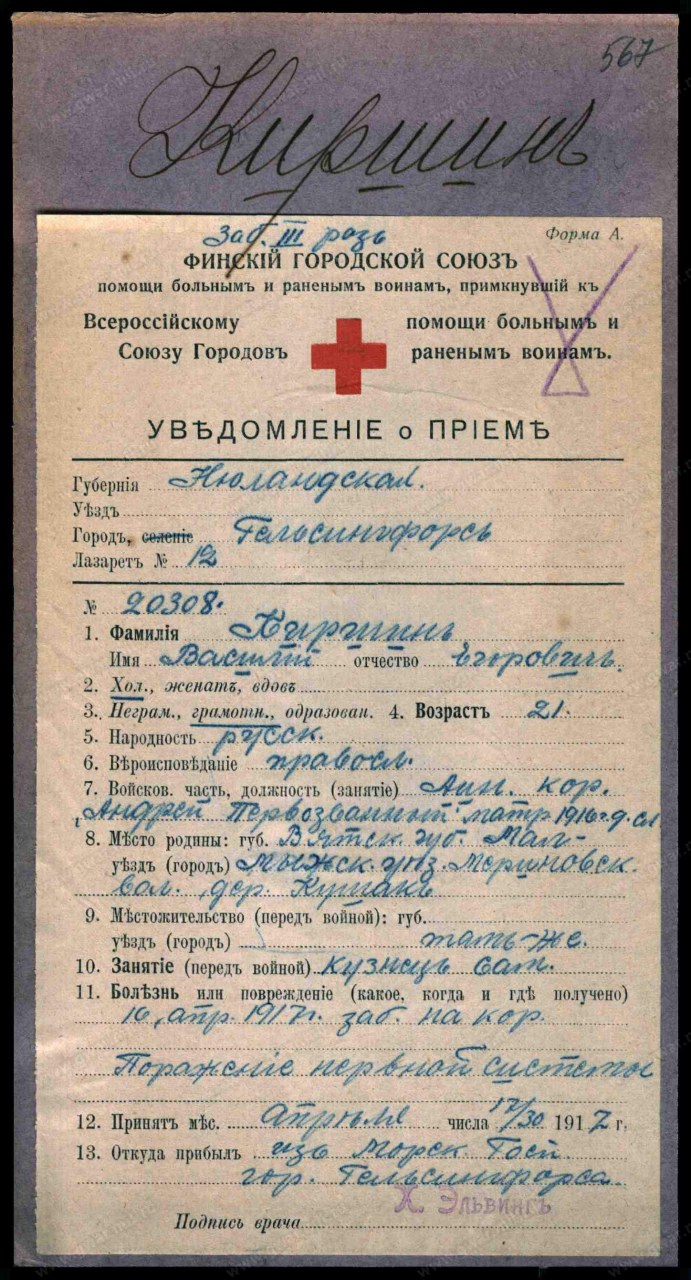 567
Киршинъ
Заб. III разъ
Форма А.
ФИНСКІЙ ГОРОДСКОЙ СОЮЗЪ
помощи больнымъ и раненымъ воинамъ, примкнувшій къ
Всероссійскому помощи больнымъ и
Союзу Городовъ раненымъ воинамъ.
УВѢДОМЛЕНІЕ о ПРІЕМѢ
Губернія Нюландская.
Уѣздъ
Городъ, селеніе Гельсингфорсъ
Лазаретъ № 12
№ 20308.
1. Фамилія Киршинъ
Имя Василій отчество Егоровичъ.
2. Хол., женатъ, вдовъ
3. Неграм., грамотн., одразован. 4. Возрастъ 21.
5. Народность русск.
6. Вѣроисповѣданіе правосл.
7. Войсков. часть, должность (занятіе) Лин. кор.
„Андрей Первозванный" матр. 1916 г. сл
8. Мѣсто родины: губ. Вятск. губ. Мал-
уѣздъ (городъ) мыжск. уѣз. Мериновск.
вол., дер. Кушакъ
9. Мѣстожительство (передъ войной): губ.
уѣздъ (городъ) тамъ-же.
10. Занятіе (передъ войной) кузнецъ
11. Болѣзнь или поврежденіе (какое, когда и гдѣ получено)
16, апр. 1917 г. заб. на кор.
Пораженіе нервной системы
12. Принятъ мѣс. Апрѣля числа 17/30 1917 г.
13. Откуда прибылъ изъ Морск. Госп
гор. Гельсингфорса
Х Эльвингъ
Подпись врача